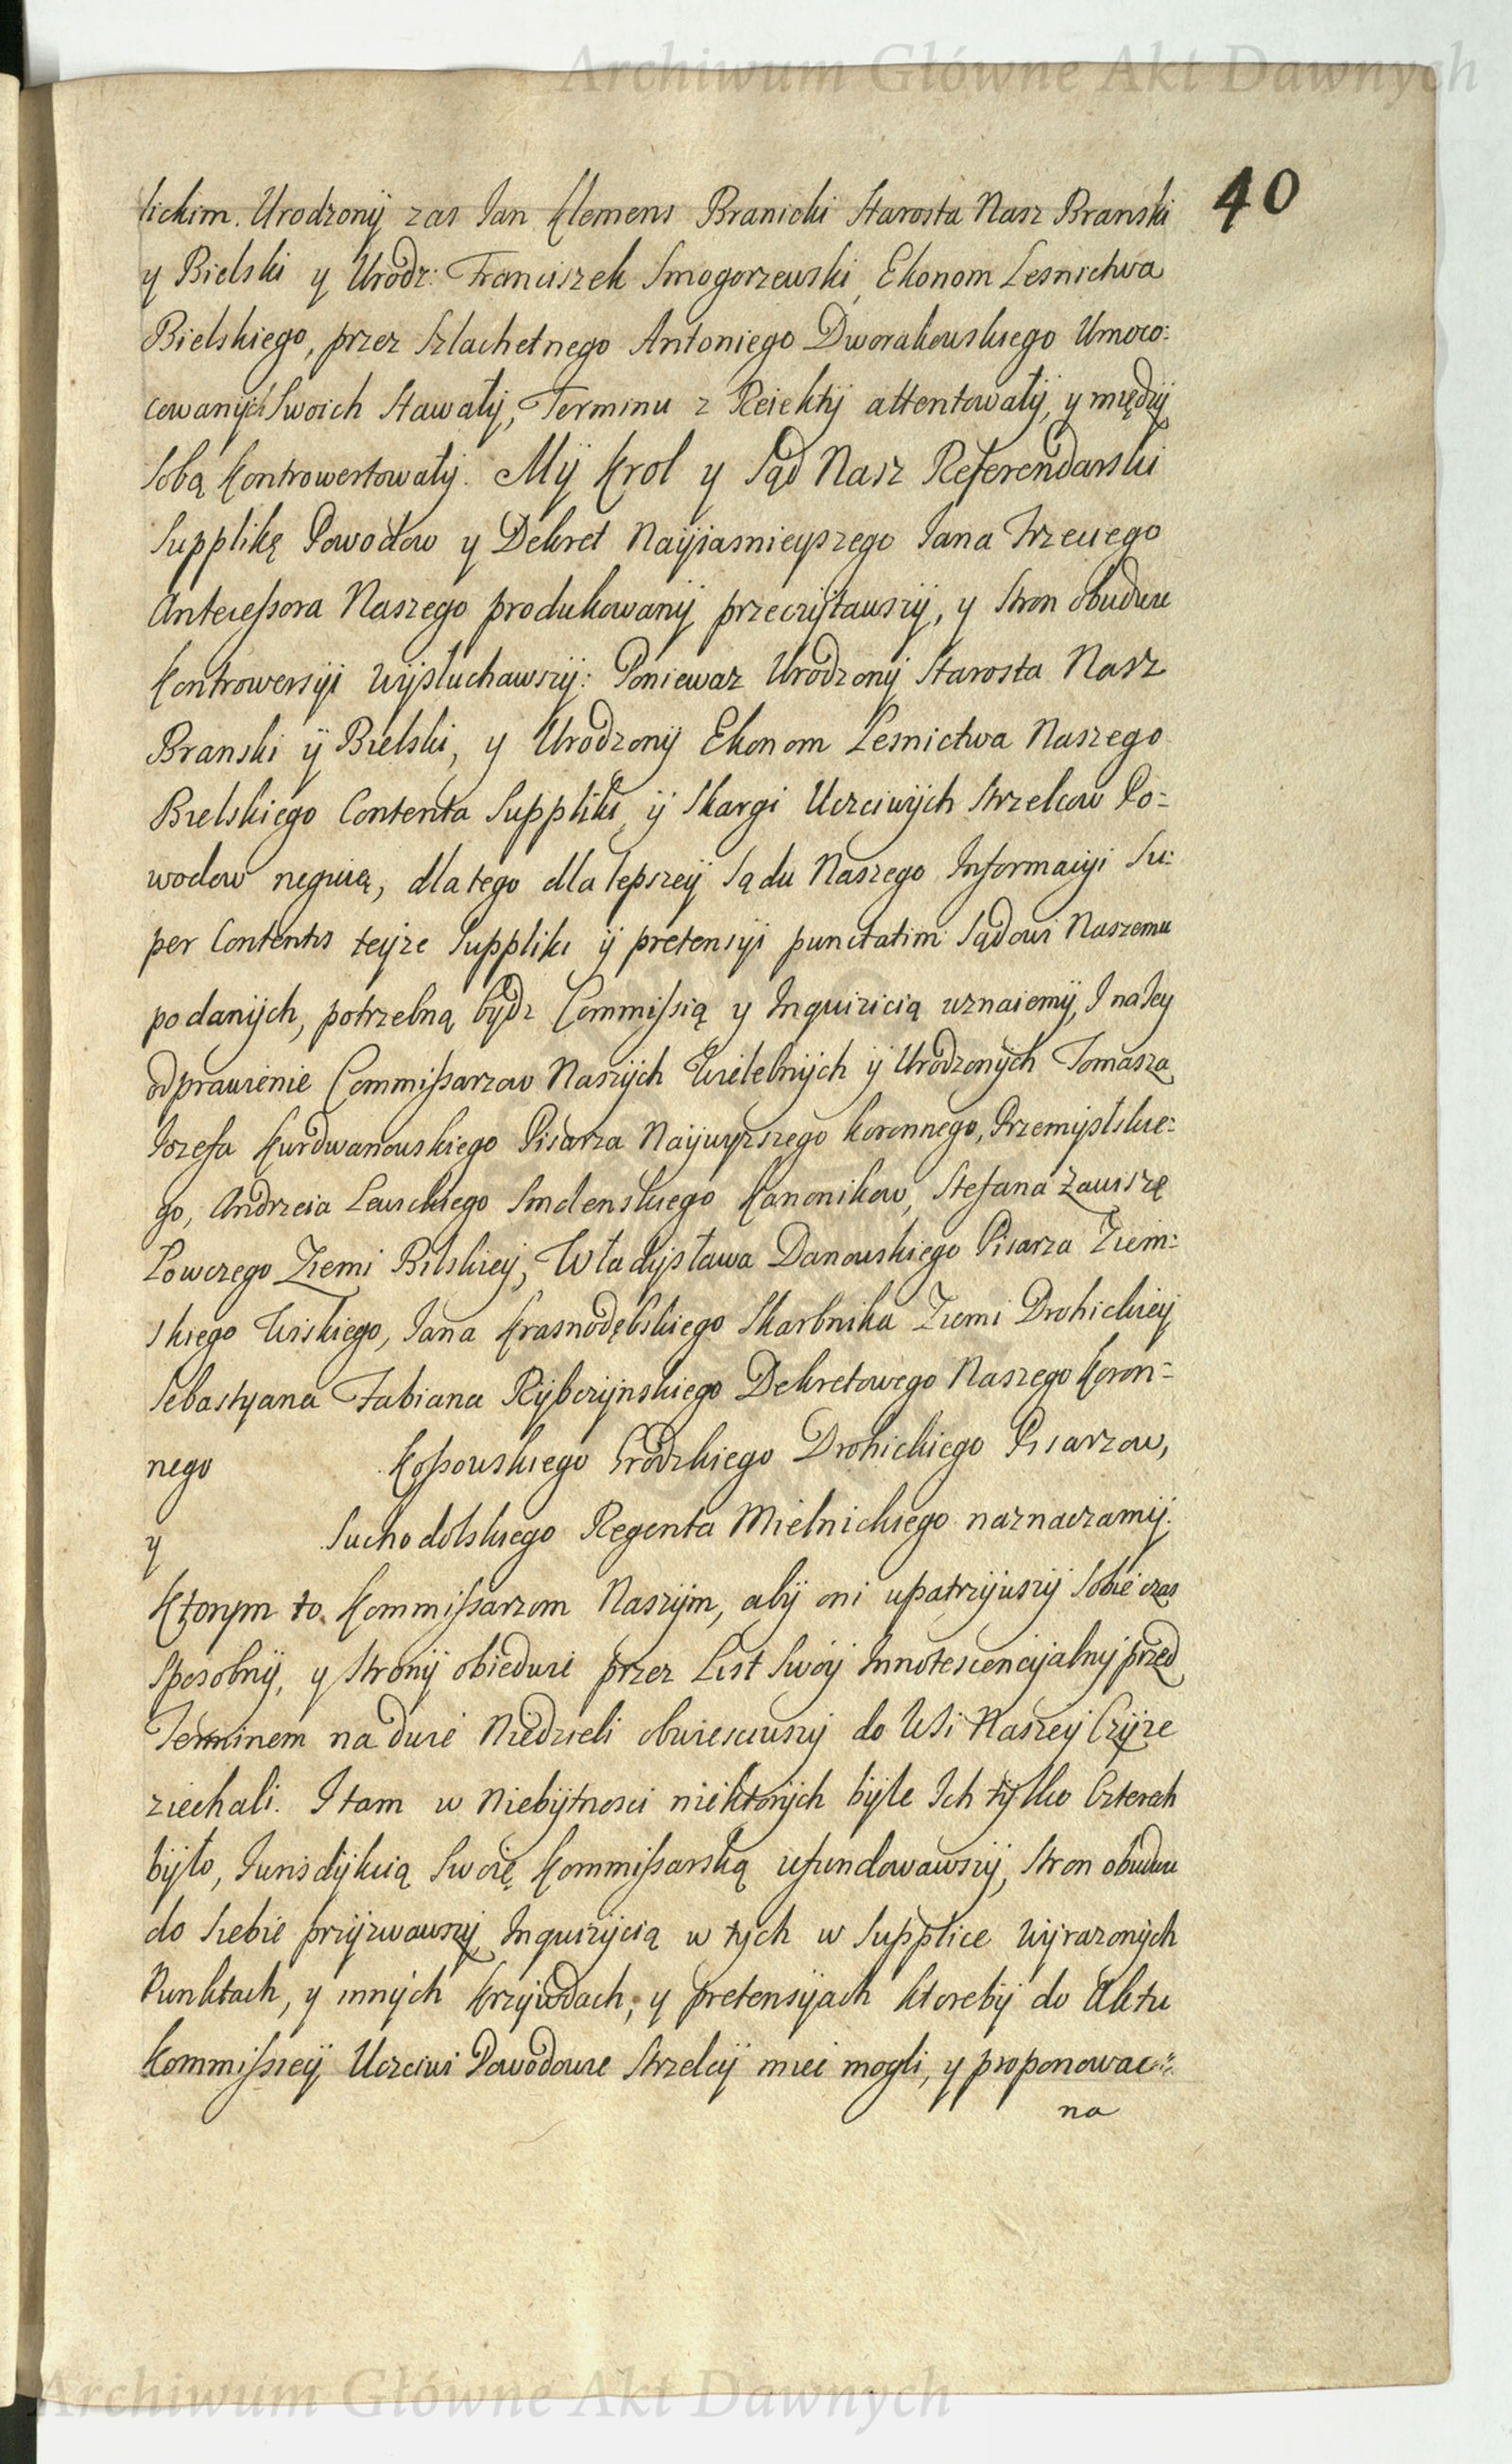 Archiwum Główne Akt Dawnych
40
lickim. Urodzony zas Jan Klemens Branicki Starosta Nasz Branski
y Bielski y Urodz: Franciszek Smogorzewski, Ekonom Lesnictwa
Bielskiego, przez Szlachetnego Antoniego Dworakowskiego Umoco:
cowanych Swoich Stawały, Terminu z Reiekty attentowały, y między
Sobą kontrowertowały. My Krol y Sąd Nasz Referendarski
Supplikę Powodow y Dekret Nayiasnieyszego Jana Trzeciego
Antecessora Naszego produkowany przeczytawszy, y Stron obudwu
Kontrowersyi wysłuchawszy: Poniewaz Urodzony Starosta Nasz
Branski y Bielski, y Urodzony Ekonom Lesnictwa Naszego
Bielskiego Contenta Suppliki, y Skargi Uczciwych Strzelcow Po=
wodow neguią, dla tego dla lepszey Sądu Naszego Informacyi Su:
per Contentis teyze Suppliki y pretensyi punctatim Sądowi Naszemu
podanych, potrzebną bydz Commissią y Inquizicią uznaiemy, I na Jey
odprawienie Commissarzow Naszych Wielebnych y Urodzonych Tomasza
Jozefa Kurdwanowskiego Pisarza Naywyzszego Koronnego, Przemyslskie=
go, Andrzeia Lewickiego Smolenskiego Kanonikow, Stefana Zawiszę
Łowczego Ziemi Bilskiey, Władysława Danowskiego Pisarza Ziem=
skiego Wiskiego, Jana Krasnodębskiego Skarbnika Ziemi Drohickiey
Sebastyana Fabiana Rybczynskiego Dekretowego Naszego Koron=
nego Kossowskiego Grodzkiego Drohickiego Pisarzow,
y Suchodolskiego Regenta Mielnickiego naznaczamy.
Ktorym to Kommissarzom Naszym, aby oni upatrzywszy Sobie czas
Sposobny, y Strony obiedwie przez List Swoy Innotescencyalny przed
Terminem na dwie Niedzieli obwiesciwszy do Wsi Naszey Czyze
ziechali. I tam w Niebytnosci niektorych byle Ich tylko Czterech
było, Jurisdykcią Swoię Kommissarską ufundowawszy, Stron obudwu
do Siebie przyzwawszy Inquizycią w tych w Supplice wyrazonych
Punktach, y innych Krzywdach, y pretensyach ktoreby do Aktu
Kommissiey Uczciwi Powodowie Strzelcy miec mogli, y proponowac=
na
Archiwum Główne Akt Dawnych